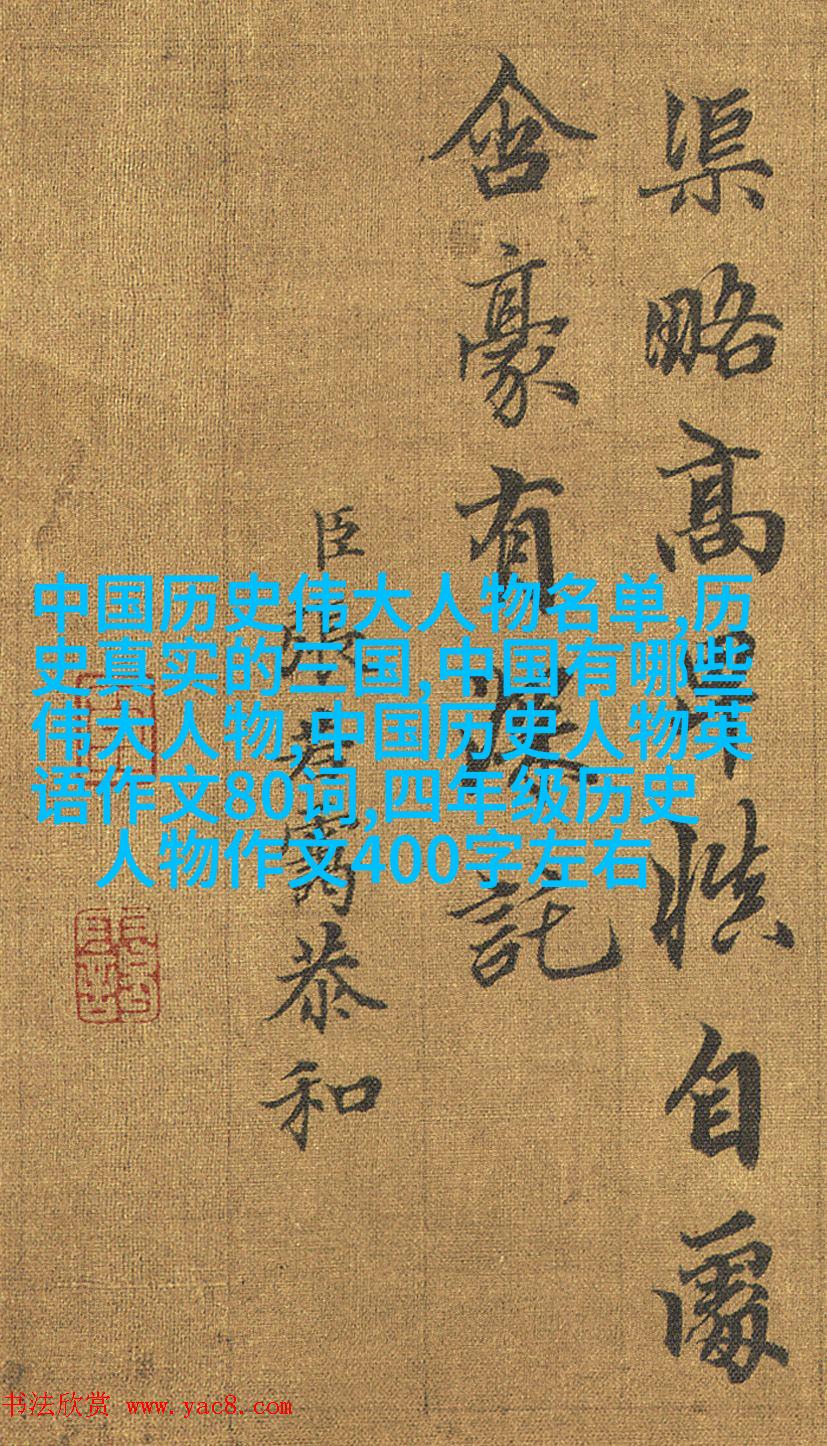 渠略高慎自處
含豪有託
臣張若靄恭和
中国历史伟大人物名单,历
史真实的三国,中国有哪些
伟大人物,中国历史人物英
语作文80词,四年级历史
人物作文400字左右
书法欣赏 www.yac8.com